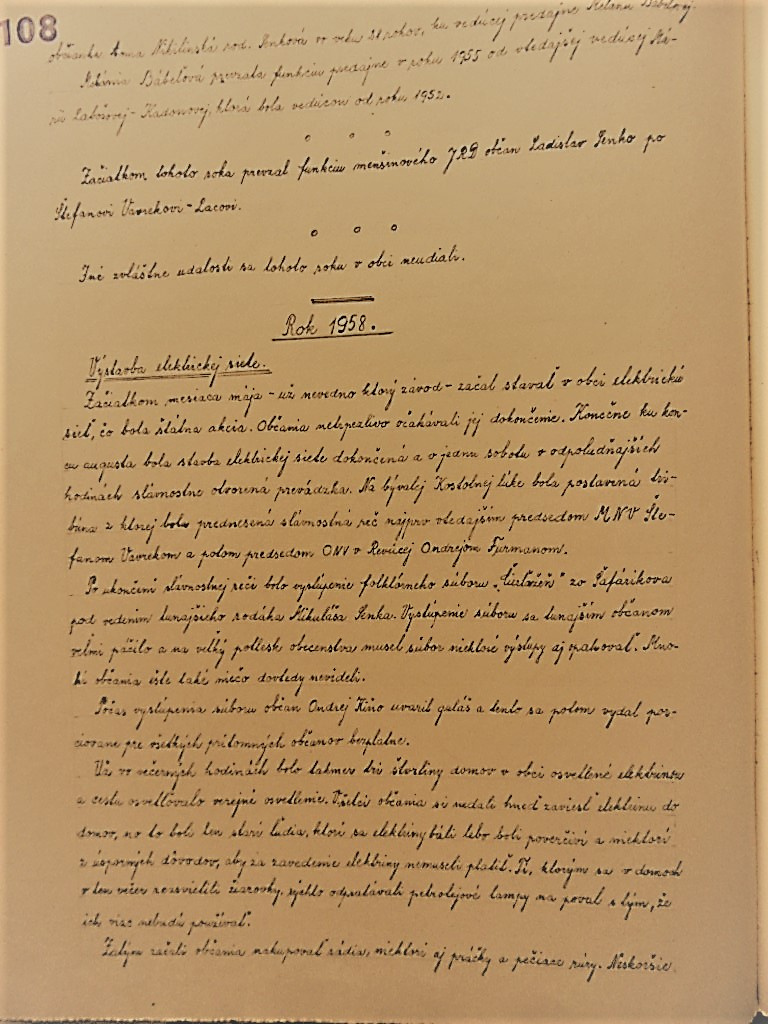 108
občianke Anna Nikitinská rod. Jenková vo veku 21 rokov, ku vedúcej predajne Melánii Bábelovej.
Melánia Bábeľová prevzala funkciu predajne v roku 1955 od vtedajšej vedúcej Má-
rii Labošovej-Kadonovej, ktorá bola vedúcou od roku 1952.
Začiatkom tohoto roka prevzal funkciu menšinového JRD občan Ladislav Jenko po
Štefanovi Vavrekovi-Lacovi.
Iné zvláštne udalosti sa tohoto roku v obci neudiali.
Rok 1958.
Výstavba elektrickej siete.
Začiatkom mesiaca mája - už nevedno ktorý závod - začal stavať v obci elektrickú
sieť, čo bola štátna akcia. Občania netrpezlivo očakávali jej dokončenie. Konečne ku kon-
cu augusta bola stavba elektrickej siete dokončená a v jednu sobotu v odpoludňajších
hodinách slávnostne otvorená prevádzka. Na bývalej Kostolnej lúke bola postavená tri-
búna z ktorej bola prednesená slávnostná reč najprv vtedajším predsedom MNV Šte-
fanom Vavrekom a potom predsedom ONV v Revúcej Ondrejom Furmanom.
Po ukončení slávnostnej reči bolo vystúpenie folklórneho súboru zo Šafárikova
pod vedením tunajšieho rodáka Mikuláša Jenka. Vystúpenie súboru sa tunajším občanom
veľmi páčilo a na veľký potlesk obecenstva musel súbor niektoré výstupy aj opakovať. Mno-
hí občania ešte také niečo dovtedy nevideli.
Počas vystúpenia súboru občan Ondrej Kňo uvaril guláš a tento sa potom vydal por-
ciovane pre všetkých prítomných občanov bezplatne.
Už vo večerných hodinách bolo takmer tri štvrtiny domov v obci osvetlené elektrinou
a cestu osvetľovalo verejné osvetlenie. Všetci občania si nedali hneď zaviesť elektrinu do
domov, no to boli len starí ľudia, ktorí sa elektriny báli lebo boli poverčiví a niektorí
z úsporných dôvodov, aby za zavedenie elektriny nemuseli platiť. Tí, ktorým sa v domoch
v ten večer rozsvietili žiarovky, rýchlo odpratávali petrolejové lampy na poval s tým, že
ich viac nebudú používať.
Zatým začali občania nakupovať rádia, niektorí aj práčky a pečiace rúry. Neskoršie